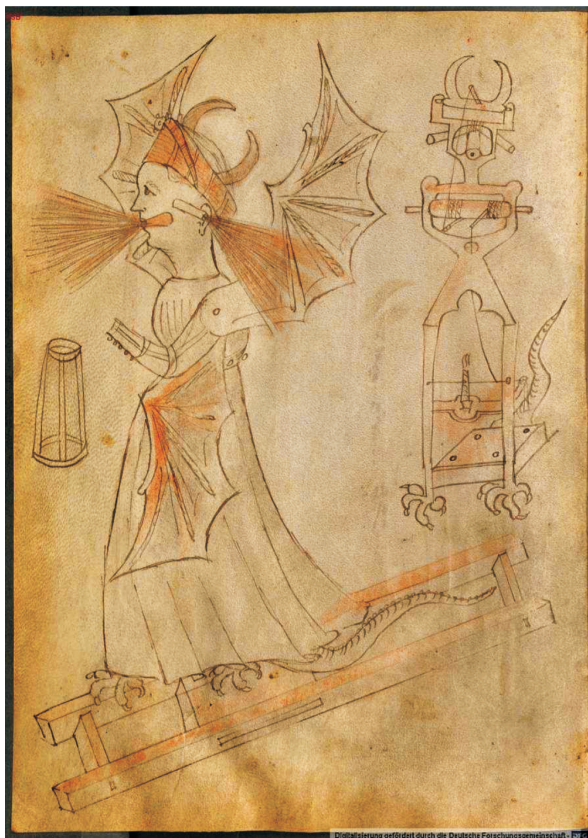 Digitalisierung gefördert durch die Deutsche Forschungsgemeinschaft -